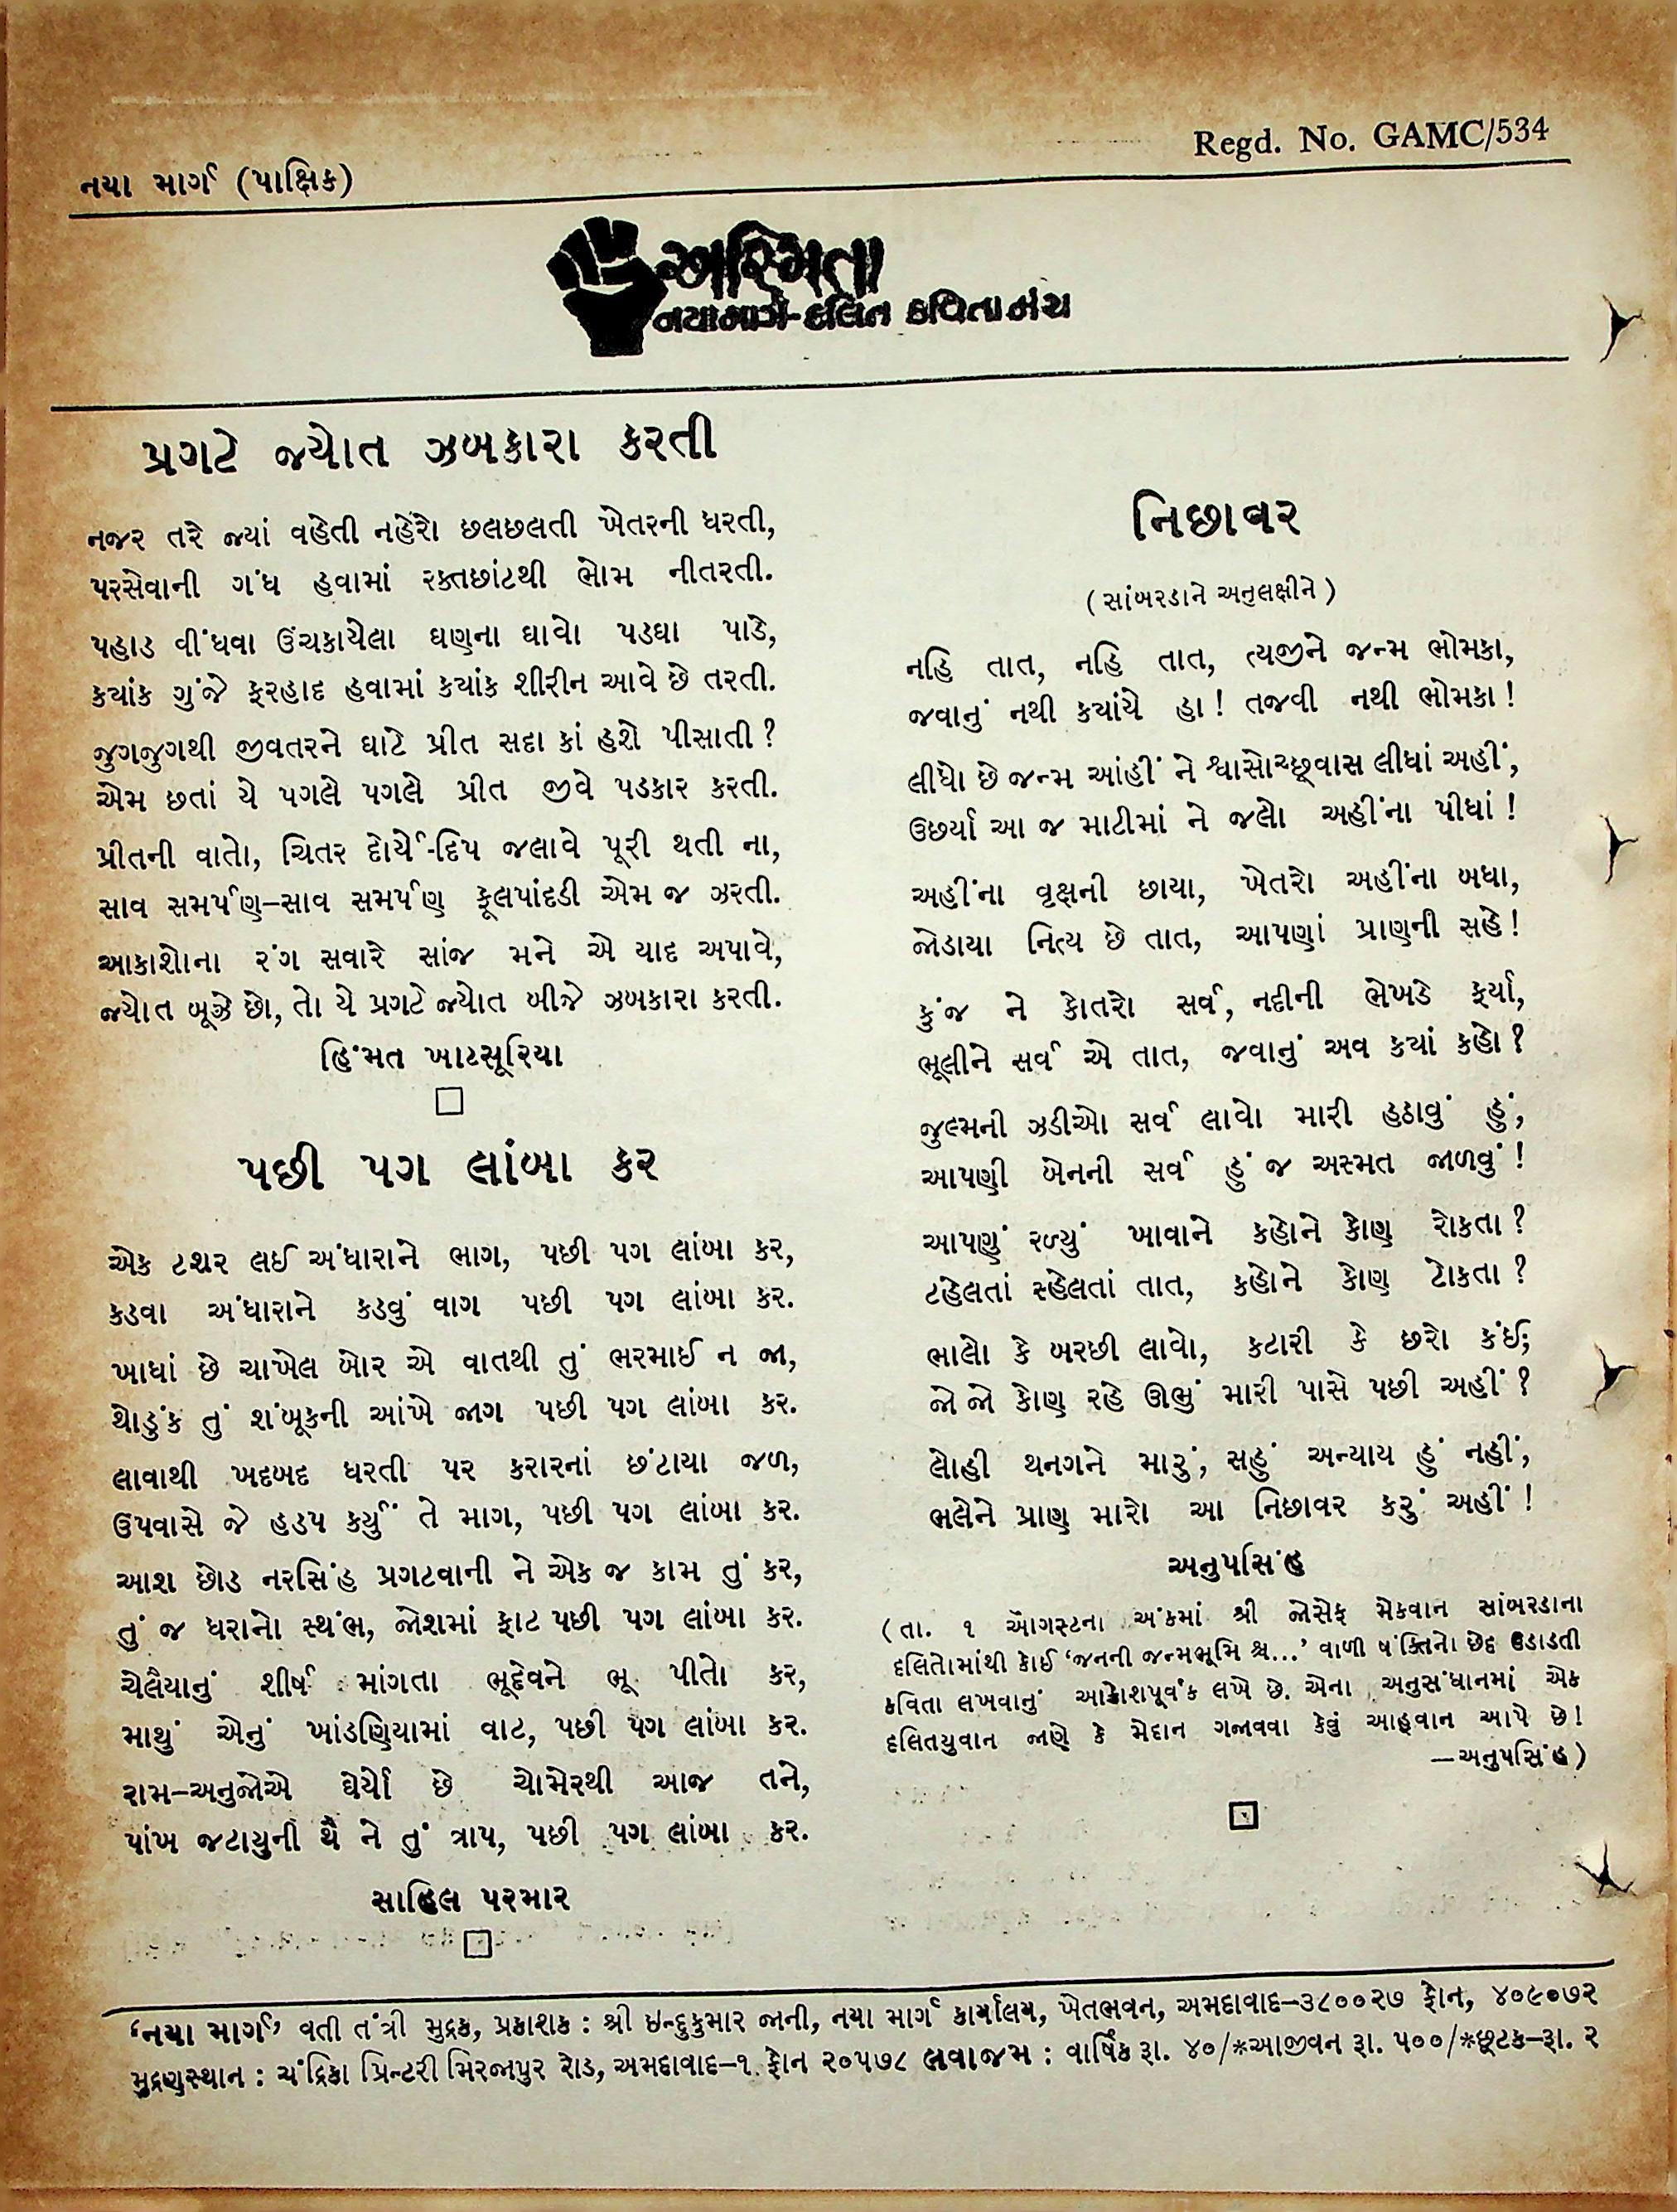 નયા માર્ગ (પાક્ષિક)
Regd. No. GAMC/534
અસ્મિતા
નયામાર્ગ-દલિત કવિતામંચ
પ્રગટે જ્યોત ઝબકારા કરતી
નજર તરે જ્યાં વહેતી નહેરો છલછલતી ખેતરની ધરતી,
પરસેવાની ગંધ હવામાં રક્તછાંટથી ભોમ નીતરતી.
પહાડ વીંધવા ઉંચકાયેલા ઘણના ઘાવો પડઘા પાડે,
કયાંક ગુંજે ફરહાદ હવામાં કયાંક શીરીન આવે છે તરતી.
જુગજુગથી જીવતરને ઘાટે પ્રીત સદા કાં હશે પીસાતી ?
એમ છતાં યે પગલે પગલે પ્રીત જીવે પડકાર કરતી.
પ્રીતની વાતો, ચિતર દોર્યે-દિપ જલાવે પૂરી થતી ના,
સાવ સમર્પણ–સાવ સમર્પણ ફૂલપાંદડી એમ જ ઝરતી.
આકાશોના રંગ સવારે સાંજ મને એ યાદ અપાવે,
જ્યોત બૂઝે છો, તો યે પ્રગટે જ્યોત બીજે ઝબકારા કરતી.
હિંમત ખાટસૂરિયા
પછી પગ લાંબા કર
એક ટશર લઈ અંધારાને ભાગ, પછી પગ લાંબા કર,
કડવા અંધારાને કડવું વાગ પછી પગ લાંબા કર.
ખાધાં છે ચાખેલ બોર એ વાતથી તું ભરમાઈ ન જા,
થોડુંક તું શંબૂકની આંખે જાગ પછી પગ લાંબા કર.
લાવાથી ખદબદ ધરતી પર કરારનાં છંટાયા જળ,
ઉપવાસે જે હડપ કર્યું તે માગ, પછી પગ લાંબા કર.
આશ છોડ નરસિંહ પ્રગટવાની ને એક જ કામ તું કર,
તું જ ધરાનો સ્થંભ, જોશમાં ફાટ પછી પગ લાંબા કર.
ચેલૈયાનું શીર્ષ માંગતા ભૂદેવને ભૂ પીતો કર,
માથું એનું ખાંડણિયામાં વાટ, પછી પગ લાંબા કર.
રામ–અનુજોએ ઘેર્યો છે ચોમેરથી આજ તને,
પાંખ જટાયુની થૈ ને તું ત્રાપ, પછી પગ લાંબા કર.
સાહિલ પરમાર
નિછાવર
(સાંબરડાને અનુલક્ષીને)
નહિ તાત, નહિ તાત, ત્યજીને જન્મ ભોમકા,
જવાનું નથી કયાંયે હા ! તજવી નથી ભોમકા !
લીધો છે જન્મ આંહીં ને શ્વાસોચ્છ્વાસ લીધાં અહીં,
ઉછર્યા આ જ માટીમાં ને જલો અહીંના પીધાં !
અહીંના વૃક્ષની છાયા, ખેતરો અહીંના બધા,
જોડાયા નિત્ય છે તાત, આપણાં પ્રાણની સહે !
કુંજ ને કોતરો સર્વ, નદીની ભેખડે ફર્યા,
ભૂલીને સર્વ એ તાત, જવાનું અવ કયાં કહો ?
જુલ્મની ઝડીઓ સર્વ લાવો મારી હઠાવું હું,
આપણી બેનની સર્વ હું જ અસ્મત જાળવું !
આપણું રળ્યું ખાવાને કહોને કોણ રોકતા ?
ટહેલતાં સ્હેલતાં તાત, કહોને કોણ ટોકતા ?
ભાલો કે બરછી લાવો, કટારી કે છરો કંઈ;
જો જો કોણ રહે ઊભું મારી પાસે પછી અહીં ?
લોહી થનગને મારું, સહું અન્યાય હું નહીં,
ભલેને પ્રાણ મારો આ નિછાવર કરું અહીં !
અનુપસિંહ
(તા. ૧ ઑગસ્ટના અંકમાં શ્રી જોસેફ મેકવાન સાંબરડાના
દલિતોમાંથી કોઈ ‘જનની જન્મભૂમિ શ્ચ...’ વાળી પંક્તિનો છેદ ઉડાડતી
કવિતા લખવાનું આક્રોશપૂર્વક લખે છે. એના અનુસંધાનમાં એક
દલિતયુવાન જાણે કે મેદાન ગજાવવા કેવું આહ્વાન આપે છે!
—અનુપસિંહ)
‘નયા માર્ગ’ વતી તંત્રી મુદ્રક, પ્રકાશક : શ્રી ઇન્દુકુમાર જાની, નયા માર્ગ કાર્યાલય, ખેતભવન, અમદાવાદ–૩૮૦૦૨૭ ફોન, ૪૦૯૦૭૨
મુદ્રણસ્થાન : ચંદ્રિકા પ્રિન્ટરી મિરજાપુર રોડ, અમદાવાદ–૧ ફોન ૨૦૫૭૮ લવાજમ : વાર્ષિક રૂા. ૪૦/*આજીવન રૂા. ૫૦૦/*છૂટક–રૂા. ૨